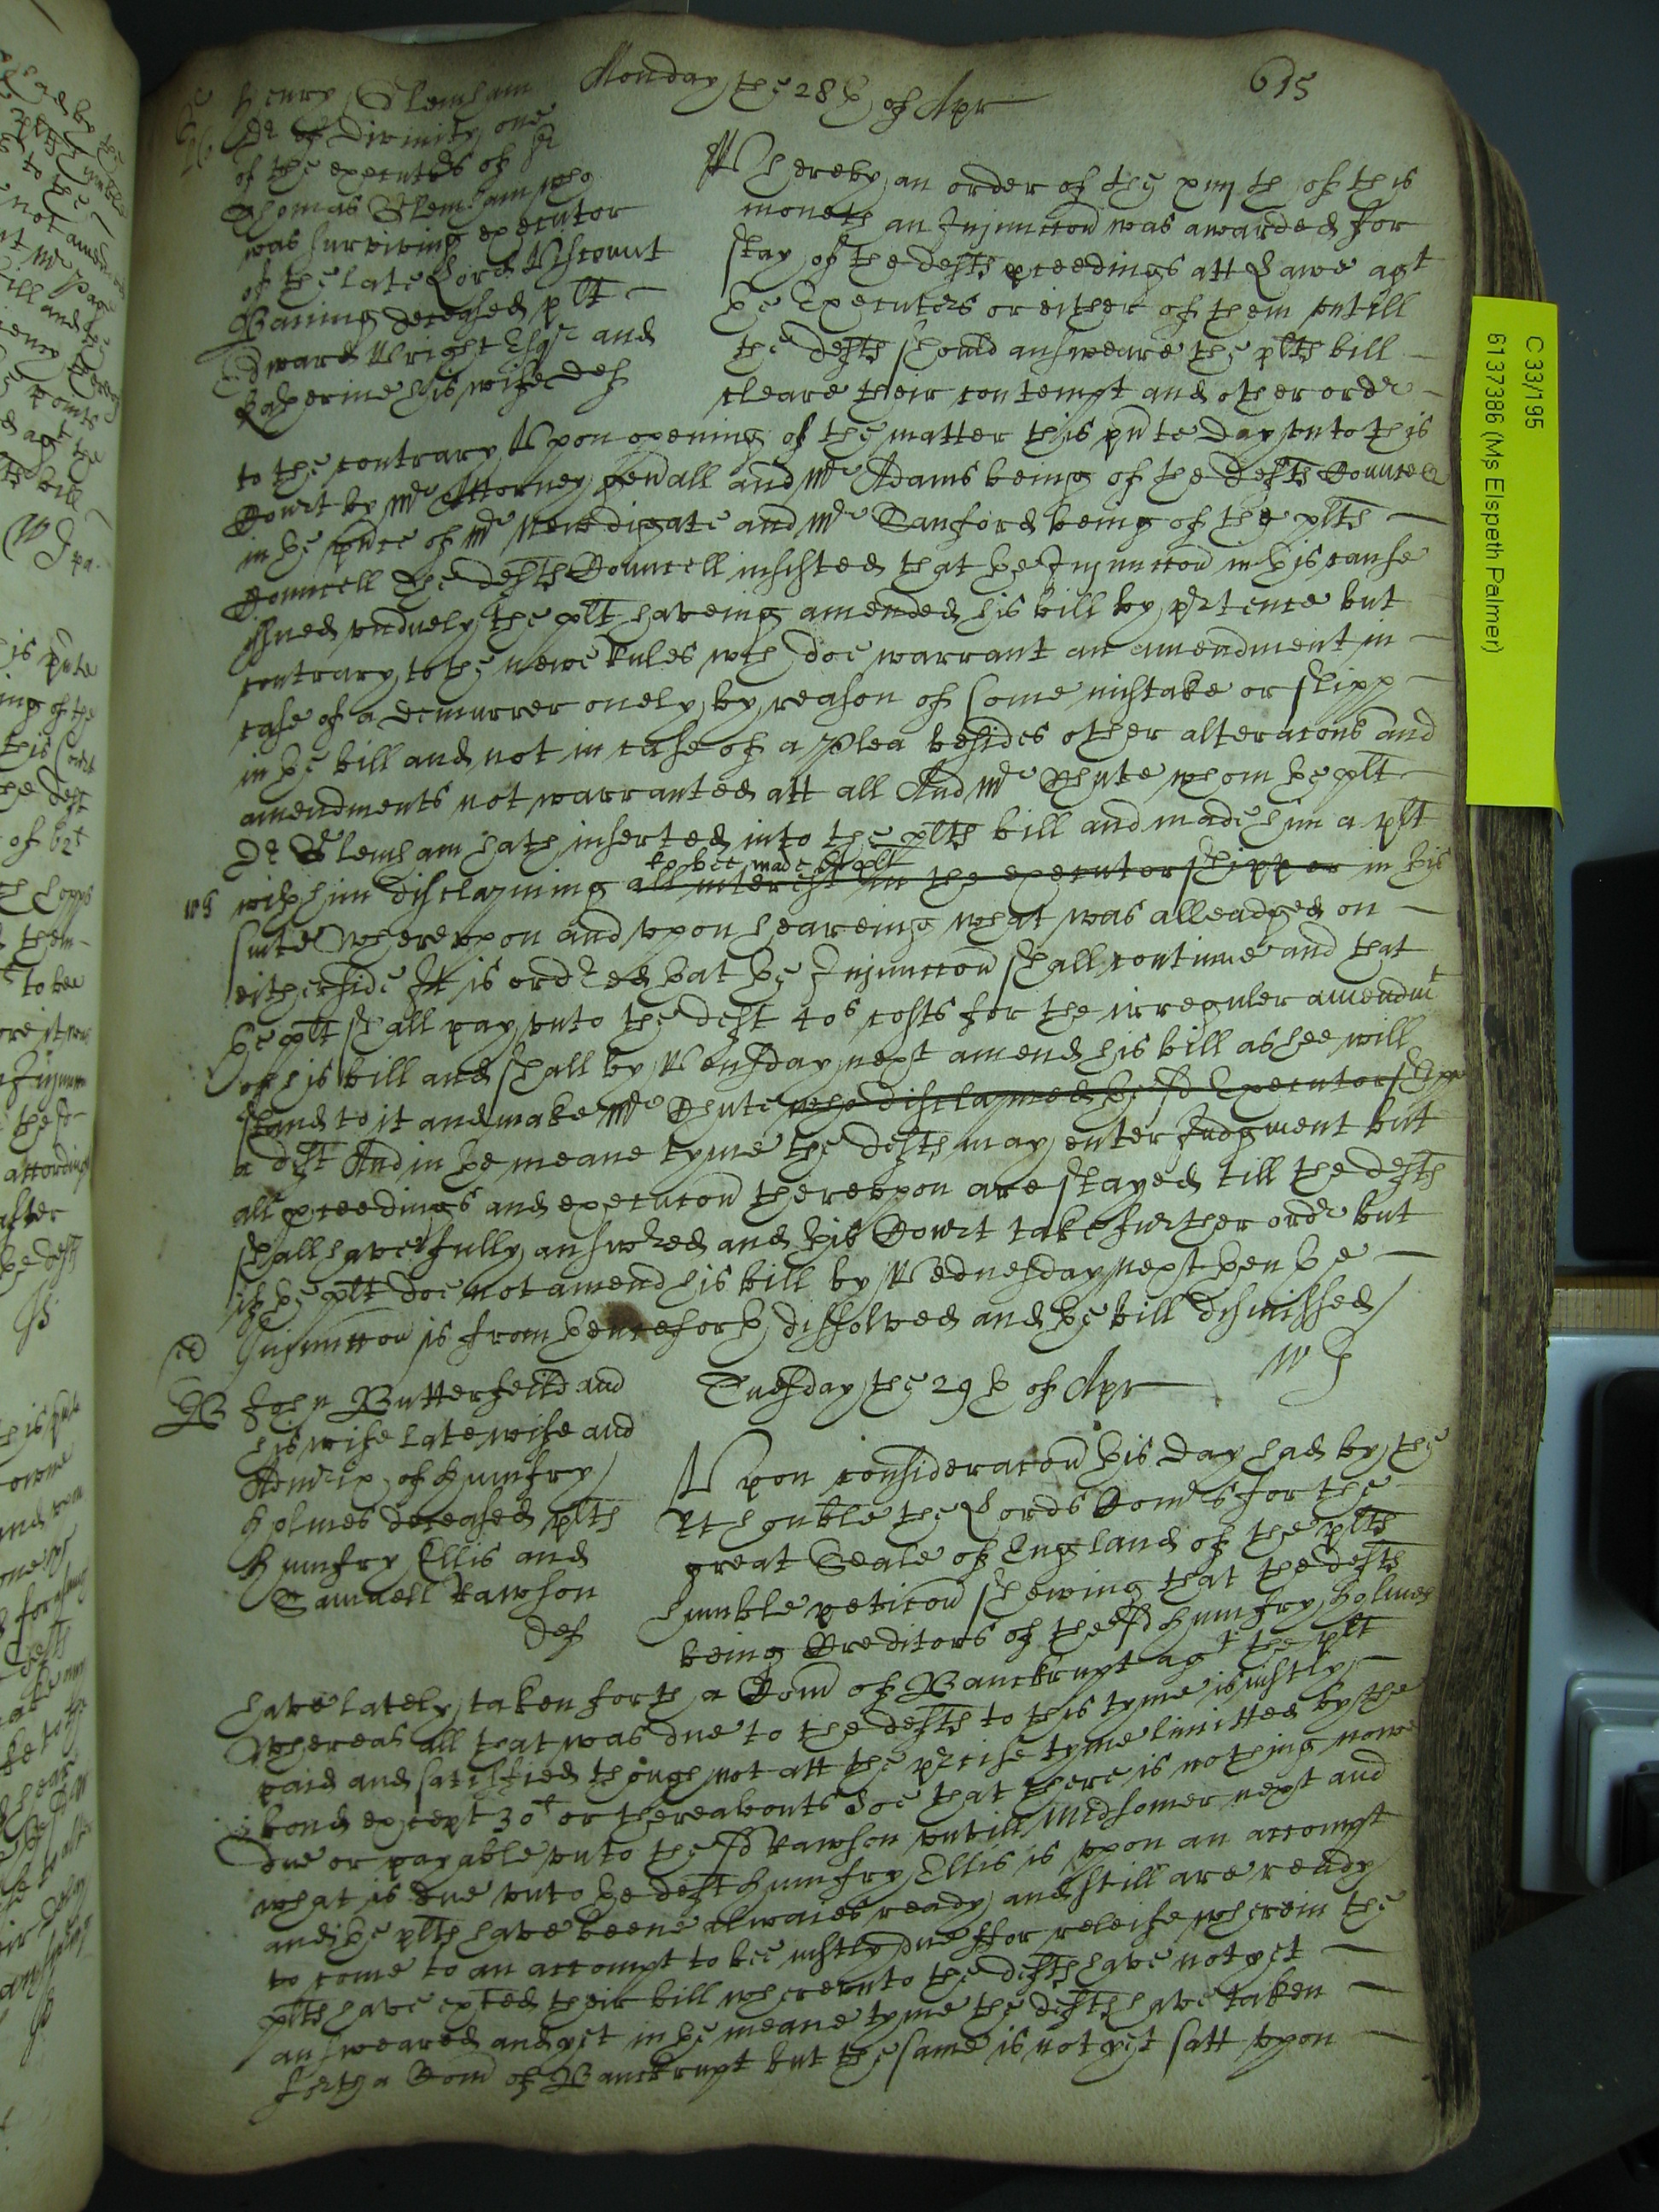 615
Monday the 28th of Apr
Henry Slemham
Dr of Divinity one
of the executrs of Sr
Thomas Slemham who
was surviving executor
of the late Lord Viscount
Baning deceased plt
Edward Wright Esqr and
Katherine his wife def
Whereby an order of the xiiijth of this
moneth an Injunccon was awarded for
stay of the defts pceedings att Lawe agt
ye Executrs or either of them untill
the defts should answeare the plts bill
cleare their contempt and other order
to the contrary Upon opening of the matter this pnte day unto this
Court by Mr Attorney genall and Mr Adams being of the defts Councell
in ye pnce of Mr Newdigate and Mr Sanford being of the plts
Councell the defts Councell insisted that ye Injunccon in this cause
issued unduely the plt haveing amended his bill by prtence but
contrary to ye newe Rules wch doe warrant an amendment in
case of a demurrer onely by reason of some mistake or slipp
in ye bill and not in case of a Plea besides other alteracons and
amendments not warranted att all And Mr Chute whom ye plt
Dr Slemham hath inserted into the plts bill and made him a plt
to bee made a plt
with him disclayming all interest in the executorshipp or in this
suite Whereupon and upon heareing what was alleadged on
either side It is ordred that ye Injunccon shall continue and that
ye plt shall pay unto the deft 40s costs for the irreguler amendmt
of his bill and shall by Wensday next amend his bill as hee will
stand to it and make Mr Chute who disclaymed ye sd Executorshipp
a deft And in ye meane tyme the defts may enter Judgment but
all pceedings and execucon thereupon are stayed till the defts
shall have fully answred and this Court take further order but
if ye plt doe not amend his bill by Wednesday next then ye
Injunccon is from thenceforth dissolved and ye bill dismissed
Tuesday the 29th of Apr
John Butterfeild and
his wife late wife and
Admrix of Humfry
Holmes deceased plts
Humfry Ellis and
Samuell Rawson
def
Upon consideracon this day had by the
Rt honble the Lords Comrs for the
great Seale of England of the plts
humble peticon shewing that the defts
being Creditors of the sd Humfry Holmes
have lately taken forth a Comn of Banckrupt agt the plt
whereas all that was due to the defts to this tyme is justly
paid and satisfied though not att the prcise tyme limitted by the
bond except 30l or thereabouts Soe that there is nothing nowe
due or payable unto the sd Rawson untill Midsomer next and
what is due unto ye deft Humfry Ellis is upon an accompt
and ye plts have beene alwaies ready and still are ready
to come to an accompt to bee justly due ffor releife wherein the
plts have exted their bill whereunto the defts have not yet
answeared and yet in ye meane tyme the defts have taken
forth a Comn of Banckrupt but the same is not yet satt upon
C 33/195
6137386 (Ms Elspeth Palmer)